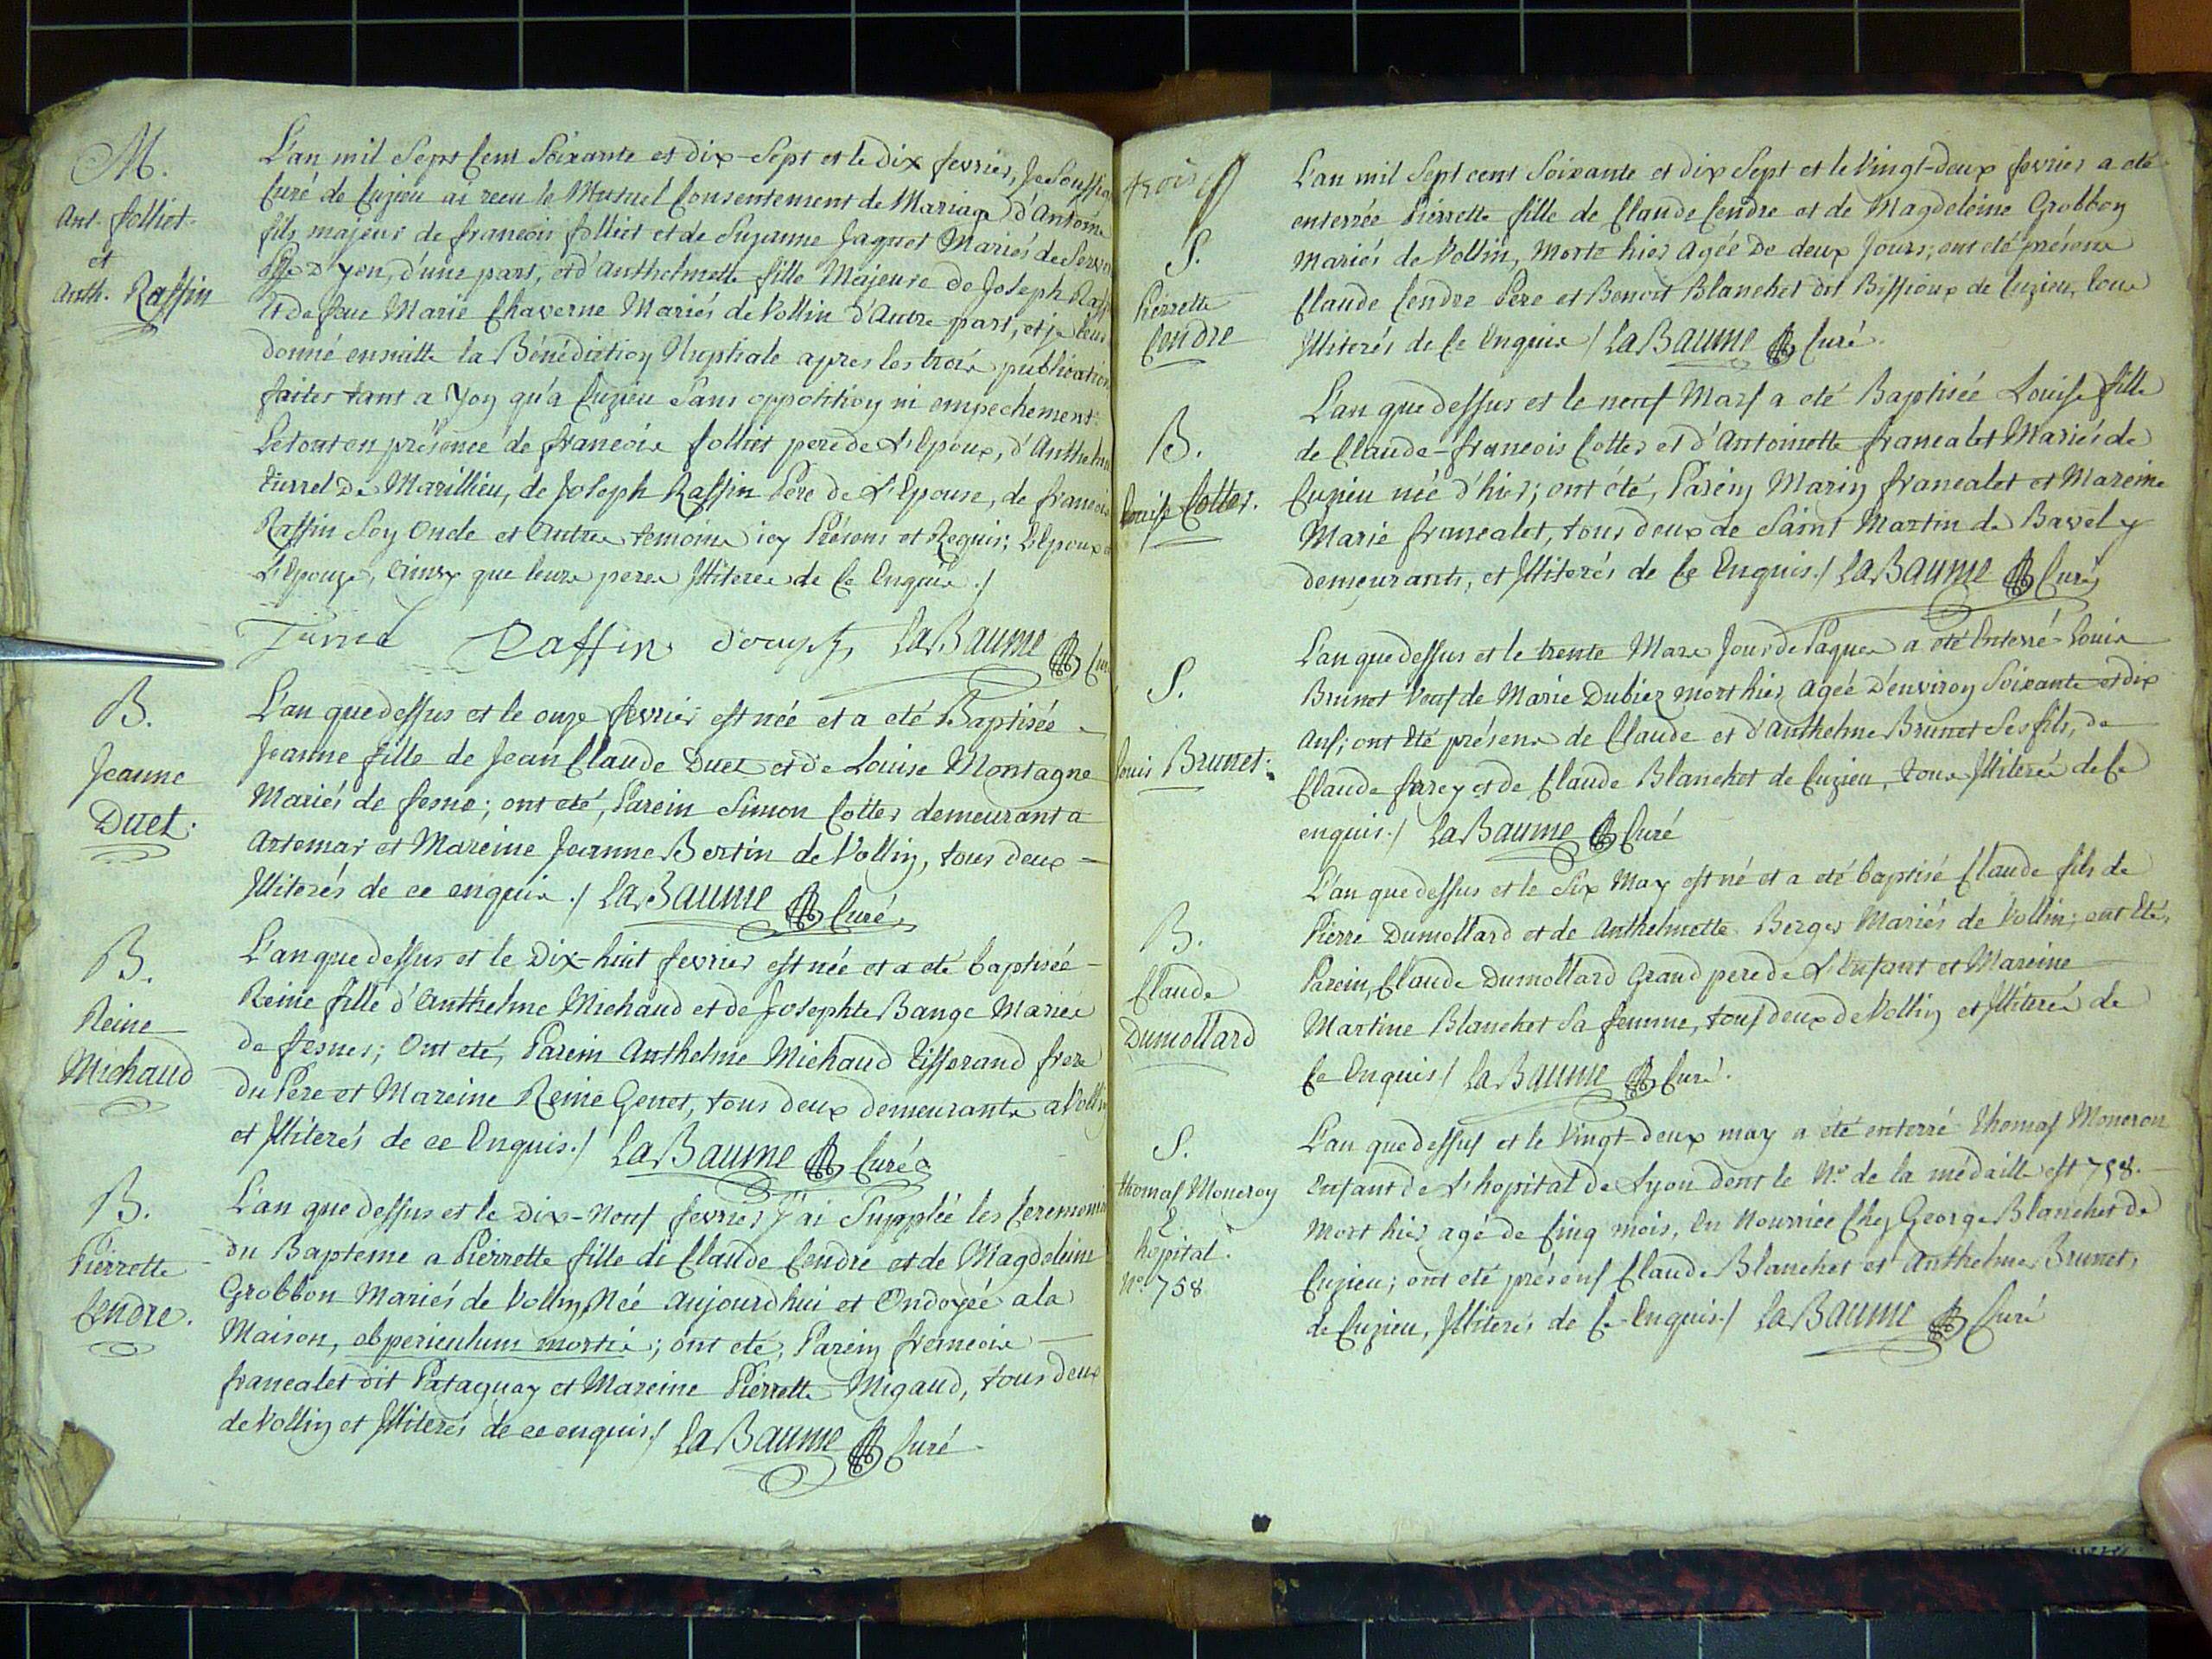 M.
Ant. folliet
et
Anth. Raffin
L'an mil Sept Cent Soixante et dix-Sept et le dix fevrier, Je Soussig
Curé de Cuzieu ai recu le Mutuel Consentement de Mariage d'Antoine
fils majeur de francois folliet et de Suzanne Jaquet Mariés de
d'yon, d'une part, et d'Anthelmette fille Majeure de Joseph Raff
Et de feue Marie Chaverne Mariés de Vollin d'Autre part, et je leur
donné ensuitte la Bénédiction Nuptiale apres les trois publication
faites tant a yon qu'a Cuzieu Sans opposition ni empechement:
Le tout en présence de francois folliet pere de L'Epoux, d'Anthelm
Turrel De Marillieu, de Joseph Raffin Pere de L'Epouse, de francois
Raffin Son Oncle et Autres temoins icy Présens et Requis; L'Epoux
L'Epouze, Ainsy que leurs peres Illiterés de Ce Enquis ./
Turrel Raffin LaBaume Cu
B.
Jeanne
Duet.
L'an que dessus et le onze fevrier est née et a eté Baptisée
Jeanne fille de Jean Claude Duet et de Louise Montagne
Mariés de fesne; ont eté, Parein Simon Cotter demeurant a
Artemar et Mareine Jeanne Bertin de Vollin, tous deux
Illiterés de ce enquis ./ LaBaume Curé
B.
Reine
Michaud
L'an que dessus et le Dix-huit fevrier est née et a eté baptisée
Reine fille d'Anthelme Michaud et de Josephte Bange Mariés
de fesnes; Ont eté, Parein Anthelme Michaud Tisserand frere
du Pere et Mareine Reine Genet, tous deux demeurants a Vollin
et Illiterés de ce Enquis./ LaBaume Curé
B.
Pierrette
Cendre.
L'an que dessus et le Dix-Neuf fevrier J'ai Supplée les Ceremonie
du Bapteme a Pierrette fille de Claude Cendre et de Magdeleine
Grobbon Mariés de Vollin, Née aujourdhui et Ondoyée a la
Maison, ob periculum mortis; ont eté, Parein francois
francalet dit Pataguay et Mareine Pierrette Migaud, tous deux
de Vollin et Illiterés de ce enquis / LaBaume Curé
trois
S.
Pierrette
Cendre
L'an mil Sept cent Soixante et dix Sept et le Vingt-deux fevrier a eté
enterrée Pierrette fille de Claude Cendre et de Magdeleine Grobbon
Mariés de Vollin, Morte hier Agée De deux Jours; ont eté présens
Claude Cendre Pere et Benoit Blanchet dit Bissioux de Cuzieu, tous
Illiterés de Ce Enquis / LaBaume Curé.
B.
Louise Cotter.
L'an que dessus et le neuf Mars a eté Baptisée Louise fille
de Claude-francois Cotter et d'Antoinette francalet Mariés de
Cuzieu née d'hier; ont été, Parein Marin francalet et Mareine
Marie francalet, tous deux de Saint Martin de Bavel y
demeurants, et Illiterés de Ce Enquis./ LaBaume Curé
S.
Louis Brunet.
L'an que dessus et le trente Mars Jour de Paques a eté Enterré Louis
Brunet Veuf de Marie Dubiez mort hier Agée D'environ Soixante et dix
Ans; ont Eté présens de Claude et d'Anthelme Brunet Ses fils, de
Claude farey et de Claude Blanchet de Cuzieu, tous Illiterés de Ce
enquis./ LaBaume Curé
B.
Claude
Dumollard
L'an que dessus et le Six May est né et a eté baptisé Claude fils de
Pierre Dumollard et de Anthelmette Berger Mariés de Vollin; ont Eté,
Parein, Claude Dumollard Grand pere de L'Enfant et Mareine
Martine Blanchet Sa femme, tous deux de Vollin et Illiterés de
Ce Enquis / LaBaume Curé.
S.
thomas Moneron
hopital.
N.º 758
L'an que dessus et le Vingt-deux may a eté enterré thomas Moneron
Enfant de L'hopital de Lyon dont le N.º de la médaille est 758.
Mort hier agé de Cinq mois, En Nourrice Chez George Blanchet de
Cuzieu; ont eté présens Claude Blanchet et Anthelme Brunet,
de Cuzieu, Illiterés de Ce Enquis / LaBaume Curé